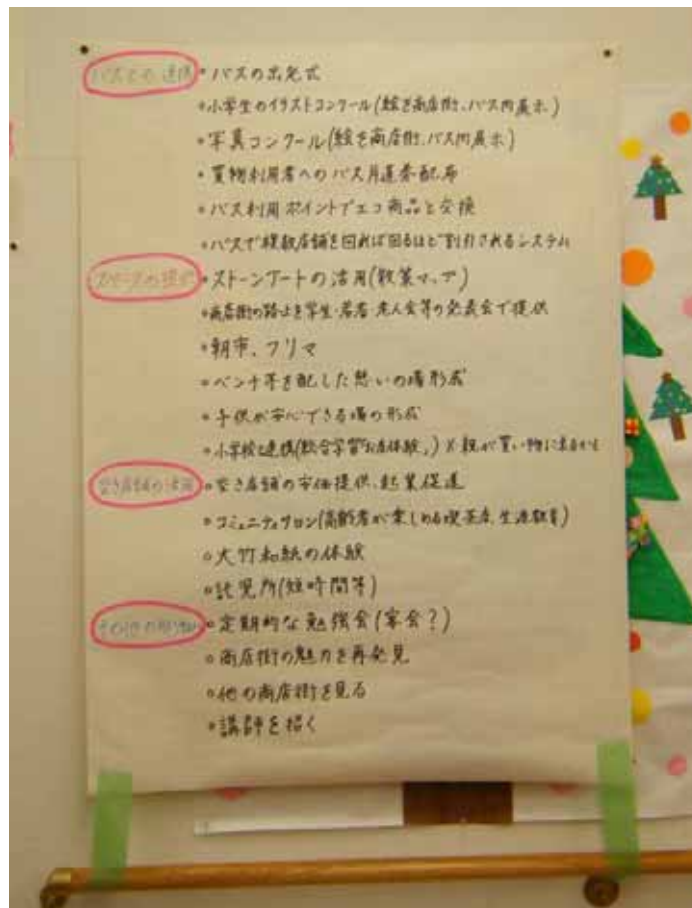 バスとの連携 ・バスの出発式
・小学生のイラストコンクール(絵を商店街、バス内展示)
・写真コンクール(絵を商店街、バス内展示)
・買物利用者へのバス片道券配布
・バス利用ポイントでエコ商品と交換
・バスで複数店舗を回れば回るほど割引されるシステム
スペースの ・ストーンアートの活用(散策マップ)
・商店街の路上を学生・若者・老人会等の発表会で提供
・朝市、フリマ
・ベンチ等を配した憩いの場形成
・子供が安心できる場の形成
・小学校と連携(総合学習"お店体験") × 親が買い物に来るかも
空き店舗の活用 ・空き店舗の安価提供、起業促進
・コミュニティサロン(高齢者が楽しめる喫茶店、生涯教育)
・大竹和紙の体験
・託児所(短時間等)
その他の ・定期的な勉強会(宴会?)
・商店街の魅力を再発見
・他の商店街を見る
・講師を招く